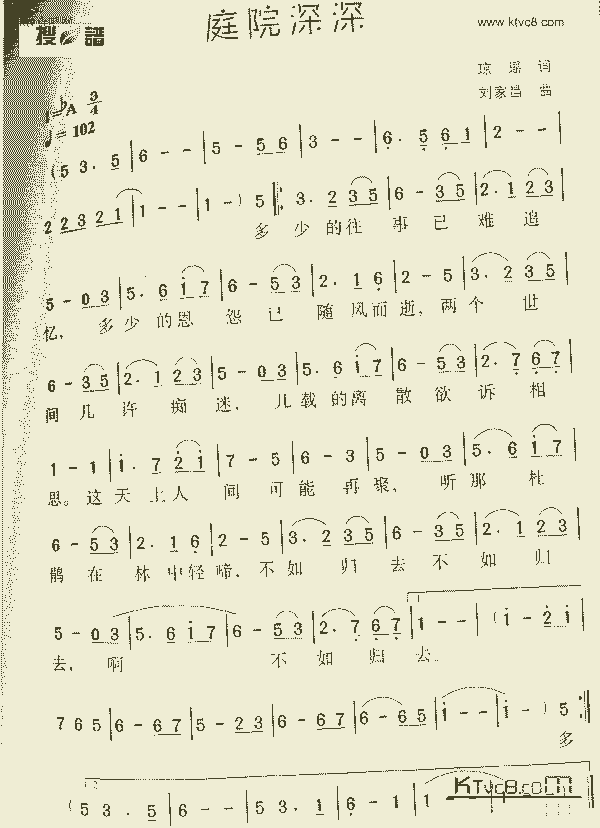 搜 谱
庭院深深
www.ktvc8.com
琼 瑶 词
刘家昌 曲
1=♭A 3/4
♩=102
(5 3. 5 | 6 - - | 5 - 5 6 | 3 - - | 6. 5 6 1 | 2 - - |
2 2 3 2 1 | 1 - - | 1 - ) 5 |: 3. 2 3 5 | 6 - 3 5 | 2. 1 2 3 |
多 少 的往 事 已 难 追
5 - 0 3 | 5. 6 i 7 | 6 - 5 3 | 2. 1 6 | 2 - 5 | 3. 2 3 5 |
忆, 多少的恩 怨 已 随 风而逝, 两个 世
6 - 3 5 | 2. 1 2 3 | 5 - 0 3 | 5. 6 i 7 | 6 - 5 3 | 2. 7 6 7 |
间 几 许 痴 迷, 几 载 的离 散 欲 诉 相
1 - 1 | i. 7 2 i | 7 - 5 | 6 - 3 | 5 - 0 3 | 5. 6 i 7 |
思。 这 天 上人 间 可 能 再 聚, 听 那 杜
6 - 5 3 | 2. 1 6 | 2 - 5 | 3. 2 3 5 | 6 - 3 5 | 2. 1 2 3 |
鹃 在 林 中轻 啼, 不 如 归 去 不 如 归
5 - 0 3 | 5. 6 i 7 | 6 - 5 3 | 2. 7 6 7 | 1. 1 - - | ( i - 2 i |
去, 啊 不 如 归 去。
7 6 5 | 6 - 6 7 | 5 - 2 3 | 6 - 6 7 | 6 - 6 5 | i - - | i - ) 5 :|
多
2.
(5 3. 5 | 6 - - | 5 3. 1 | 6 - 1 | 1
KTvc8.com